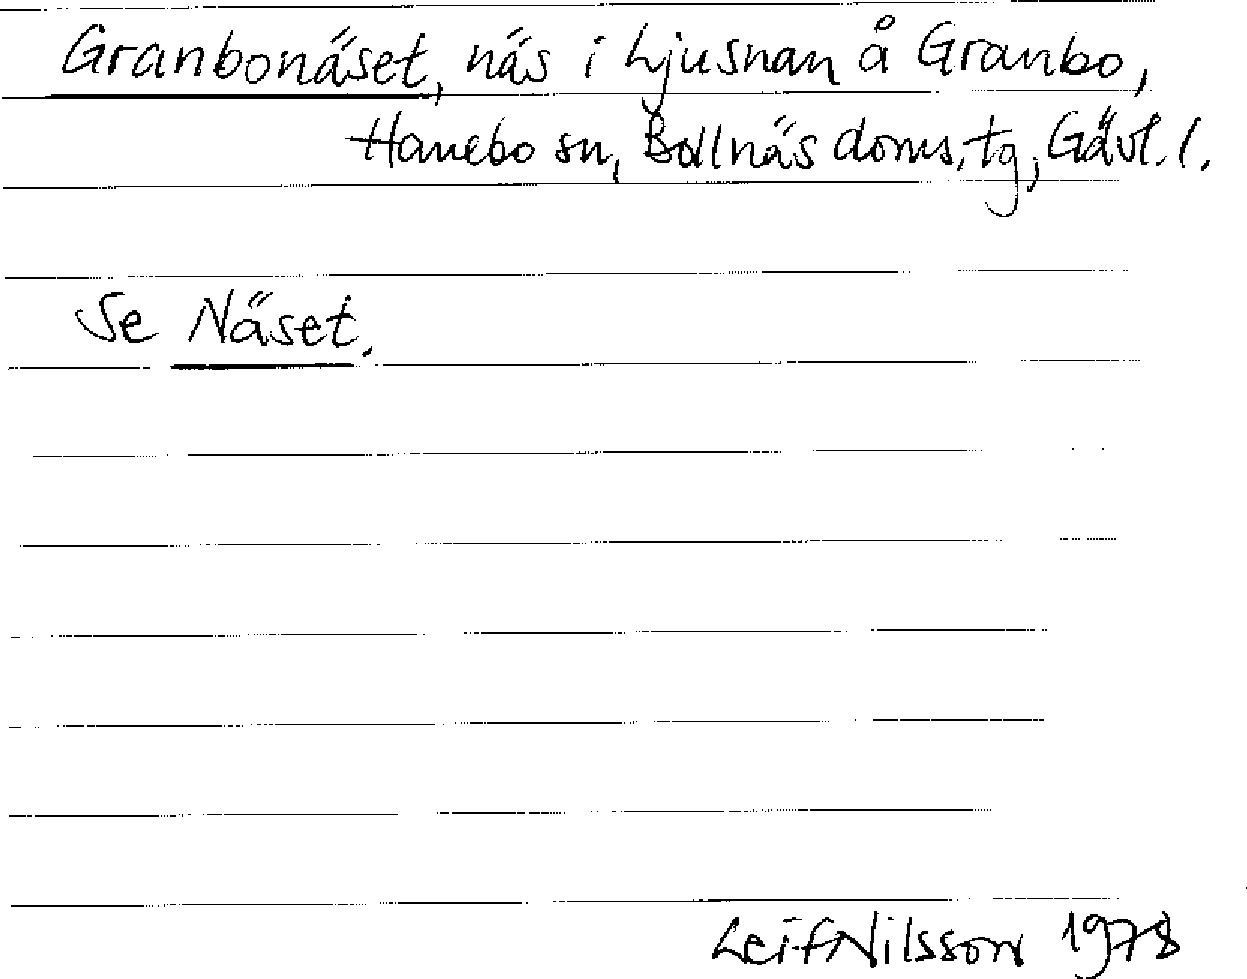 Granbonäset, näs i Ljusnan å Granbo,
Hanebo sn, Bollnäs doms.tg, Gävl. l.
Se Näset.
Leif Nilsson 1978